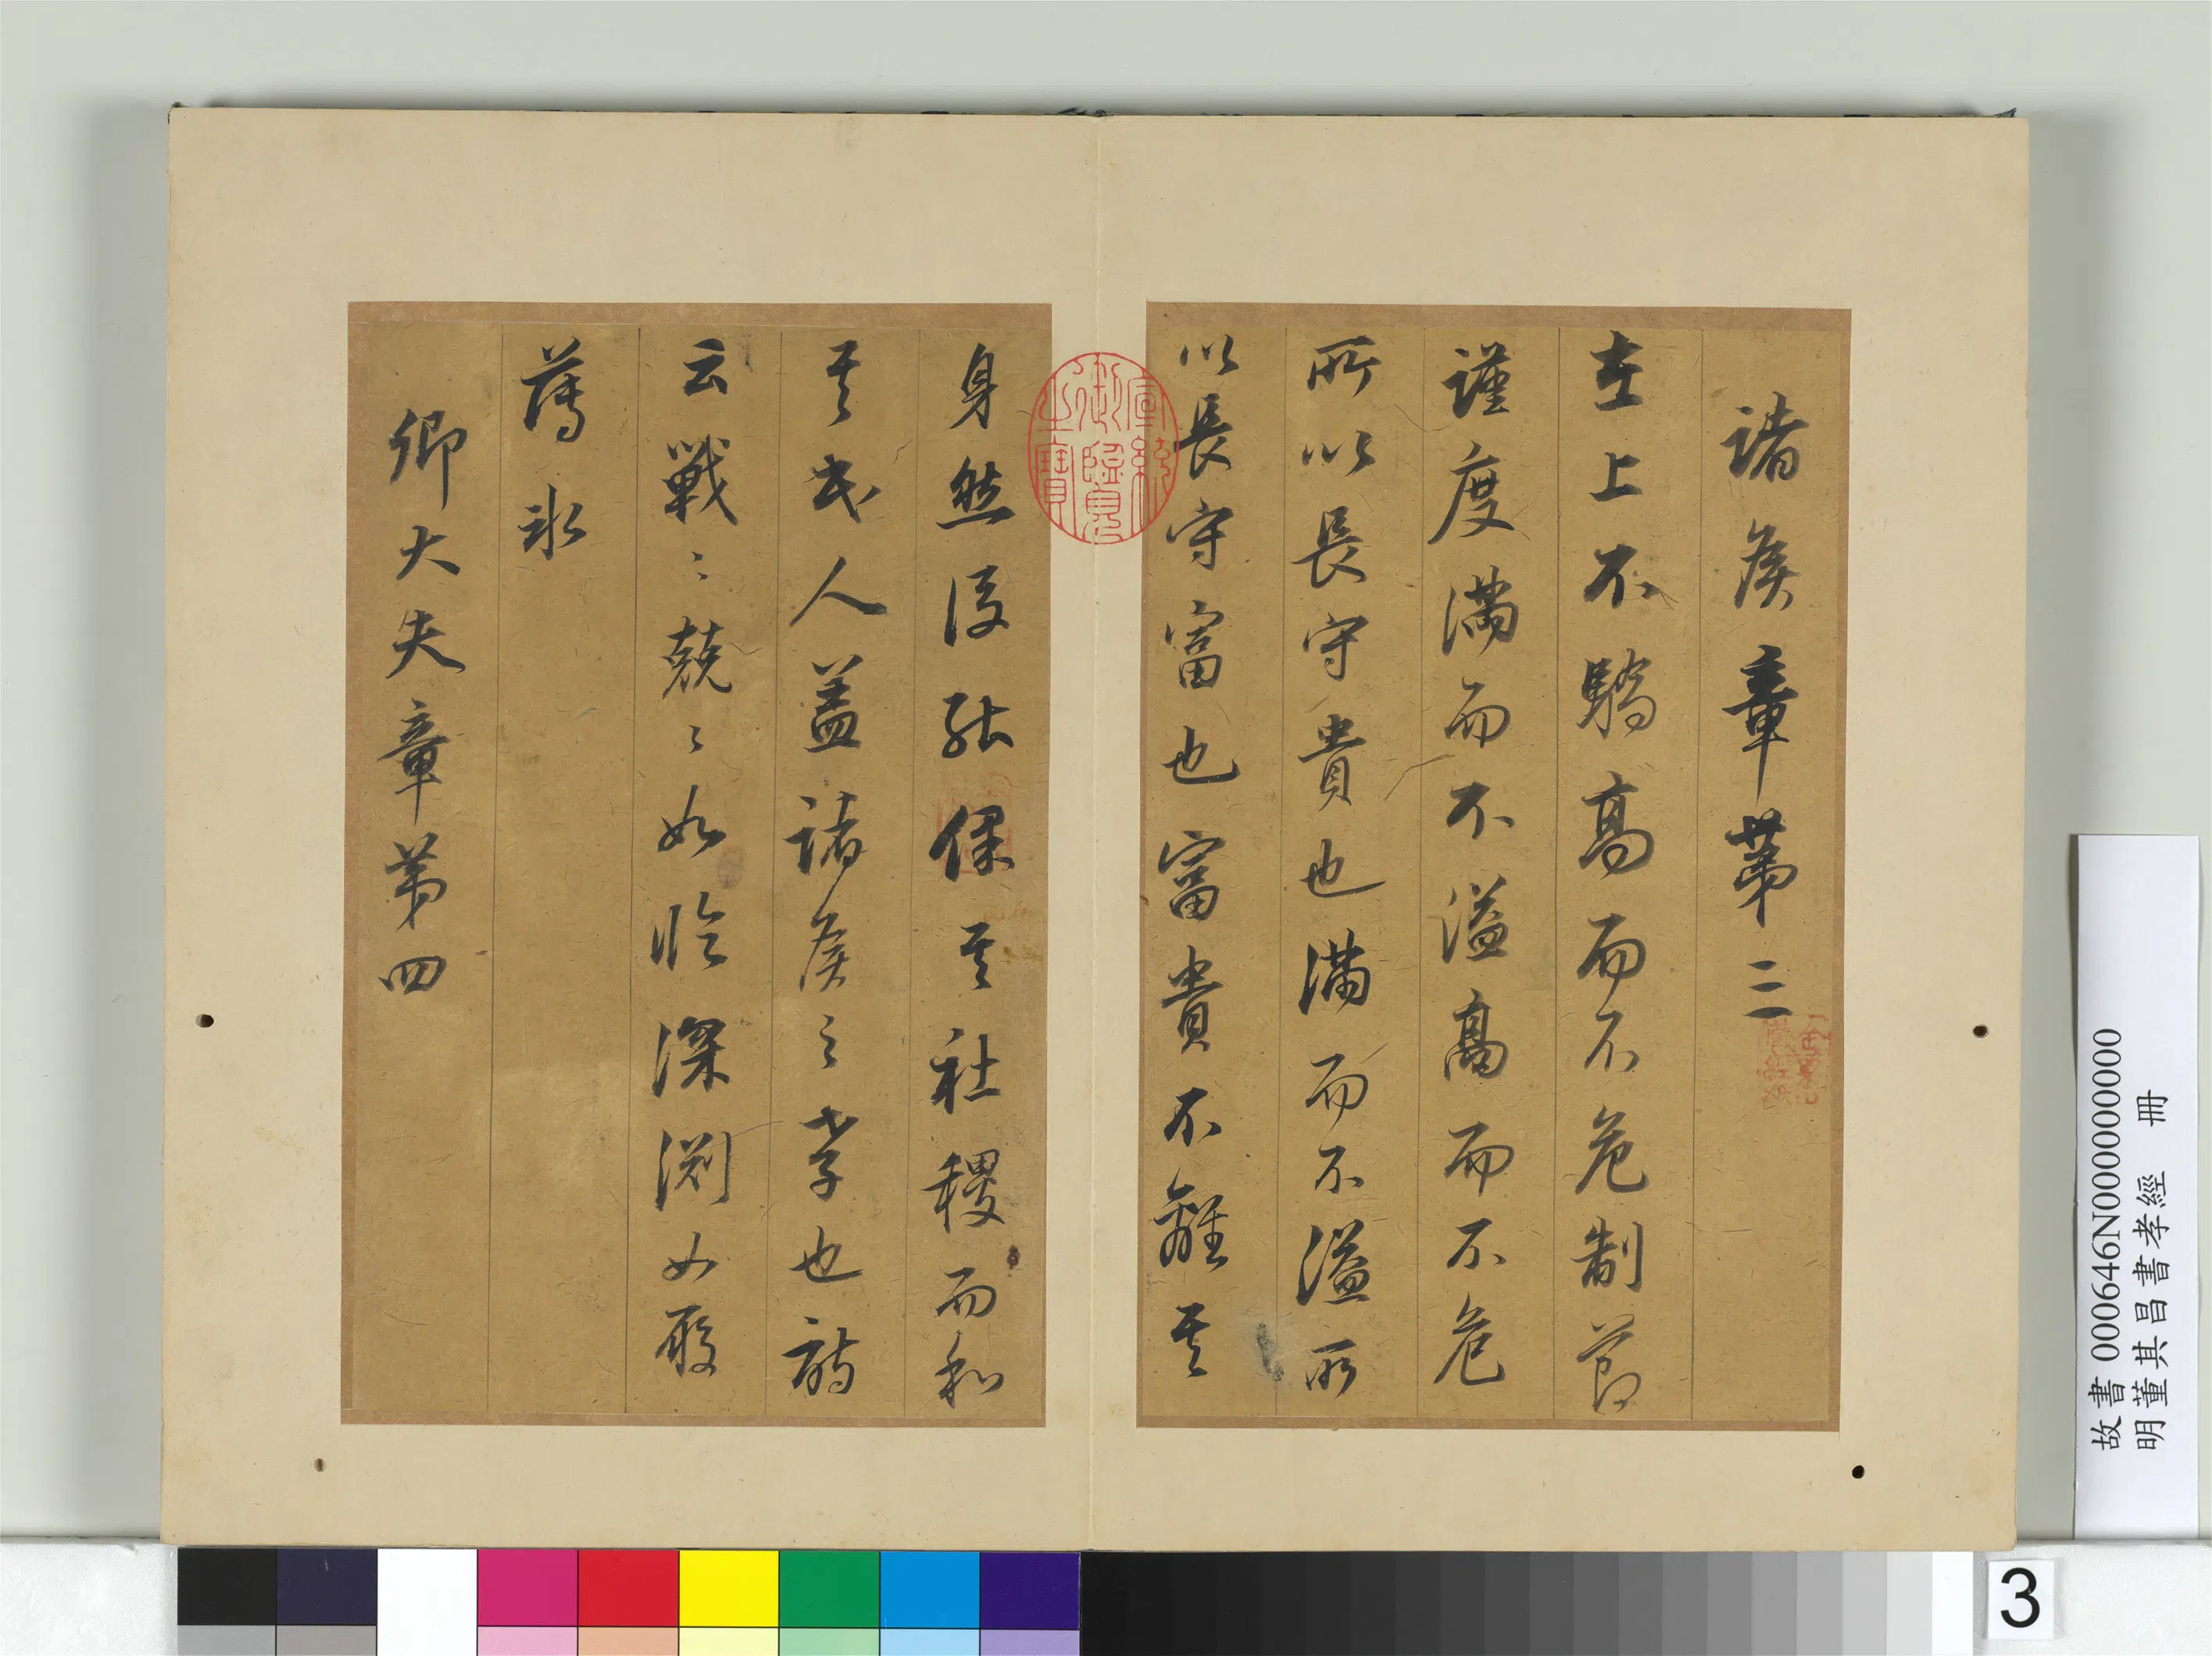 諸侯章第三
在上不驕高而不危制節
謹度滿而不溢高而不危
所以長守貴也滿而不溢所
以長守富也富貴不離其
身然後能保其社稷而和
其民人蓋諸侯之孝也詩
云戰〻兢〻如臨深淵如履
薄冰
卿大夫章第四
宣統
御覽
之寶
故書 000646N000000000
明董其昌書孝經 冊
3